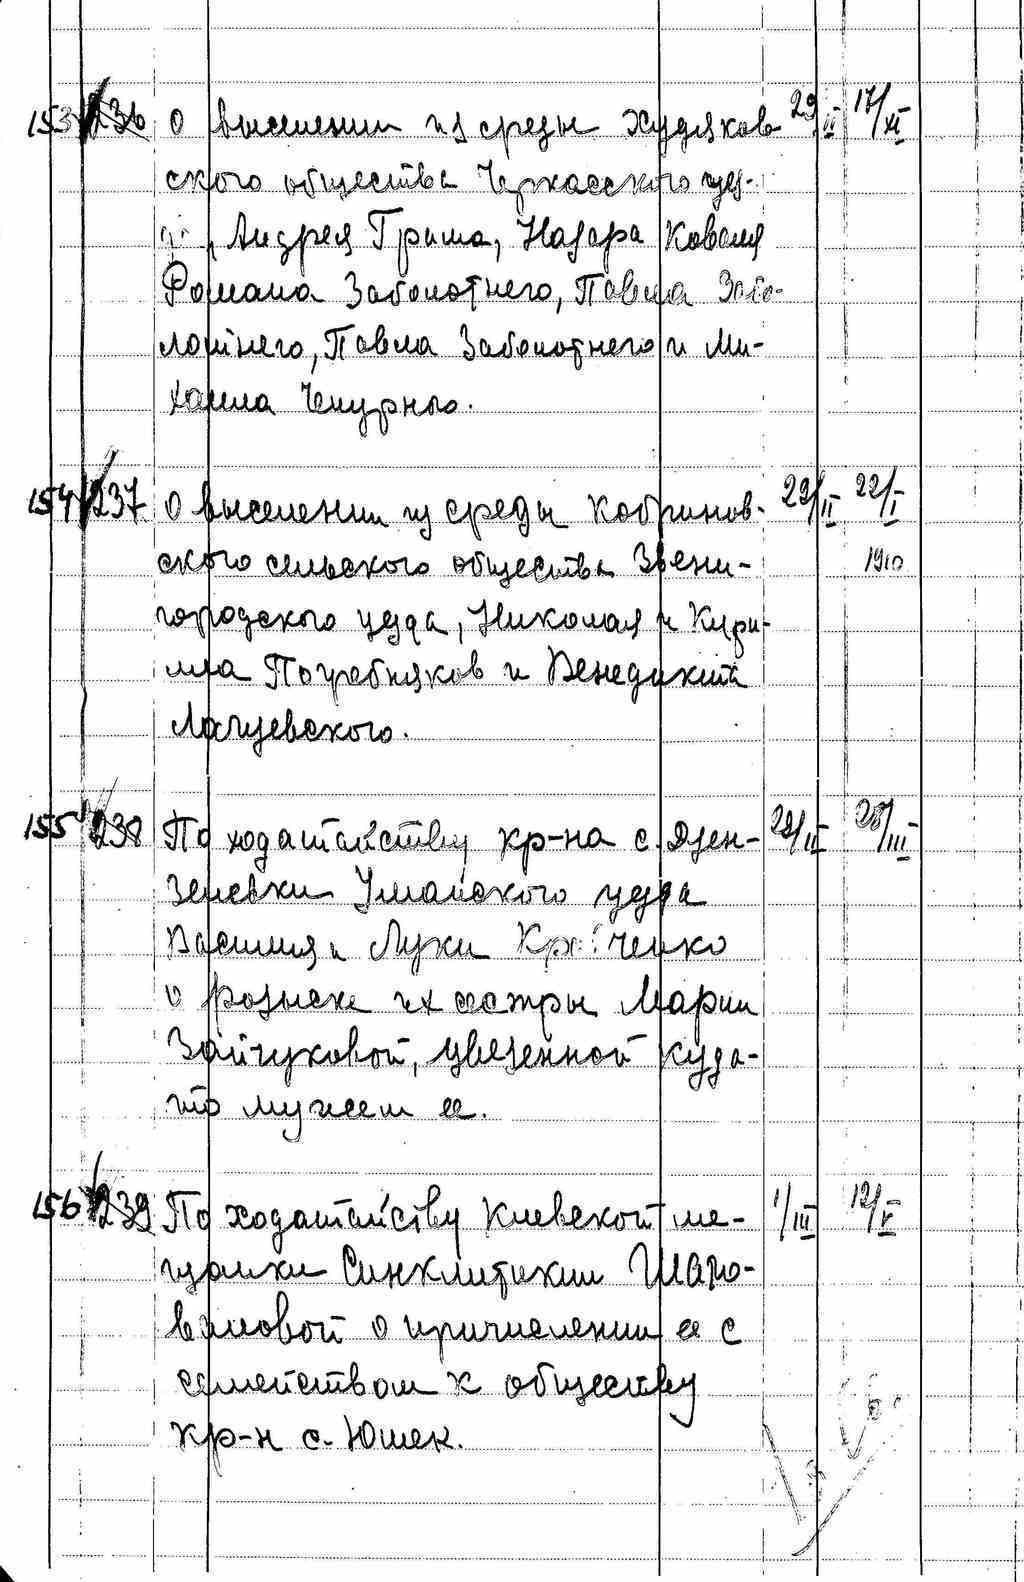 153 236 О выселении из среды Худяков- 29/II 17/XI
ского общества Черкасского уез-
Андрея Гриша, Назара Коваля
Романа Заболотнего, Павла Забо-
лотнего, Павла Заболотнего и Ми-
хаила Чепурного.
154 237 О выселении из среды Кобринов- 29/II 22/I
ского сельского общества Звени- 1910
городского уезда, Николая и Кири-
лла Погребняков и Венедикта
155 238 По ходатайству кр-на с. Дзен- 29/II 28/III
зелевки Уманского уезда
Василия и Луки
о розыске их сестры Марии
Зайчуковой, увезенной куда-
то мужем ее.
156 239 По ходатайству Киевской ме- 1/III 12/V
щанки Синклитикии Шапо-
валовой о причислении ее с
семейством к обществу
кр-н с. Юшек.